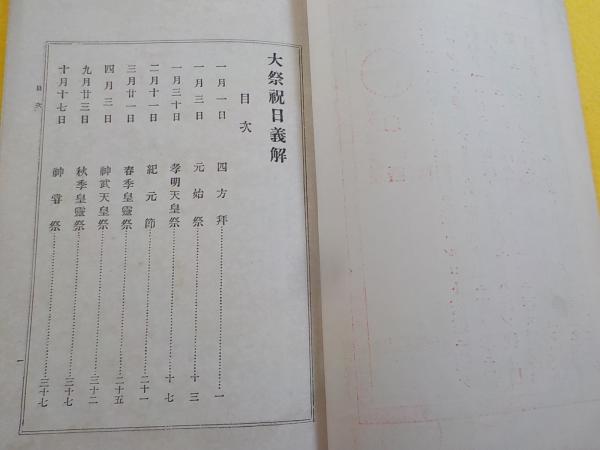 大祭祝日義解
目次
一月一日 四方拜 一
一月三日 元始祭 十三
一月三十日 孝明天皇祭 十七
二月十一日 紀元節 二十一
三月廿一日 春季皇靈祭 二十五
四月三日 神武天皇祭 三十二
九月廿三日 秋季皇靈祭 三十七
十月十七日 神甞祭 三十七
目次
一